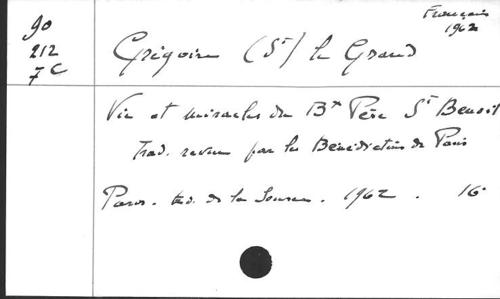 90
212
7 C
Français
1962
Grégoire (St) le Grand
Vie et miracles du Bx Père St Benoit
Trad. revue par les Bénédictins de Paris
Paris. Ed. de la Source. 1962. 16°